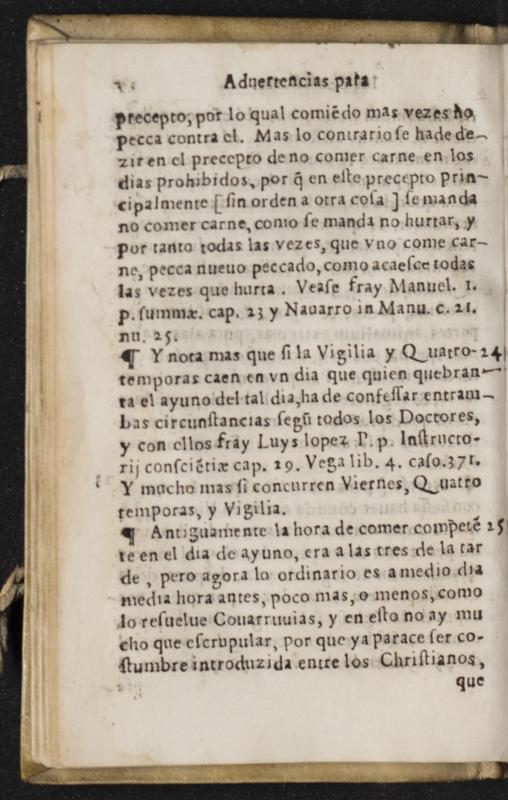 Aduertencias para
precepto, por lo qual comiẽdo mas vezes no
pecca contra el. Mas lo contrario se hade de-
zir en el precepto de no comer carne en los
dias prohibidos, por q̃ en este precepto prin-
cipalmente [ sin orden a otra cosa ] se manda
no comer carne, como se manda no hurtar, y
por tanto todas las vezes, que vno come car-
ne, pecca nueuo peccado, como acaesce todas
las vezes que hurta. Vease fray Manuel. 1.
p. summæ. cap. 23 y Nauarro in Manu. c. 21.
nu. 25.
¶ Y nota mas que si la Vigilia y Quatro- 24
temporas caen en vn dia que quien quebran
ta el ayuno del tal dia, ha de confessar entram-
bas circunstancias segũ todos los Doctores,
y con ellos fray Luys lopez P. p. Instructo-
rij consciẽtiæ cap. 29. Vega lib. 4. caso. 371.
Y mucho mas si concurren Viernes, Quatro
temporas, y Vigilia.
¶ Antiguamente la hora de comer competẽ 25
te en el dia de ayuno, era a las tres de la tar
de, pero agora lo ordinario es a medio dia
media hora antes, poco mas, o menos, como
lo resuelue Couarruuias, y en esto no ay mu
cho que escrupular, por que ya parace ser co-
stumbre introduzida entre los Christianos,
que